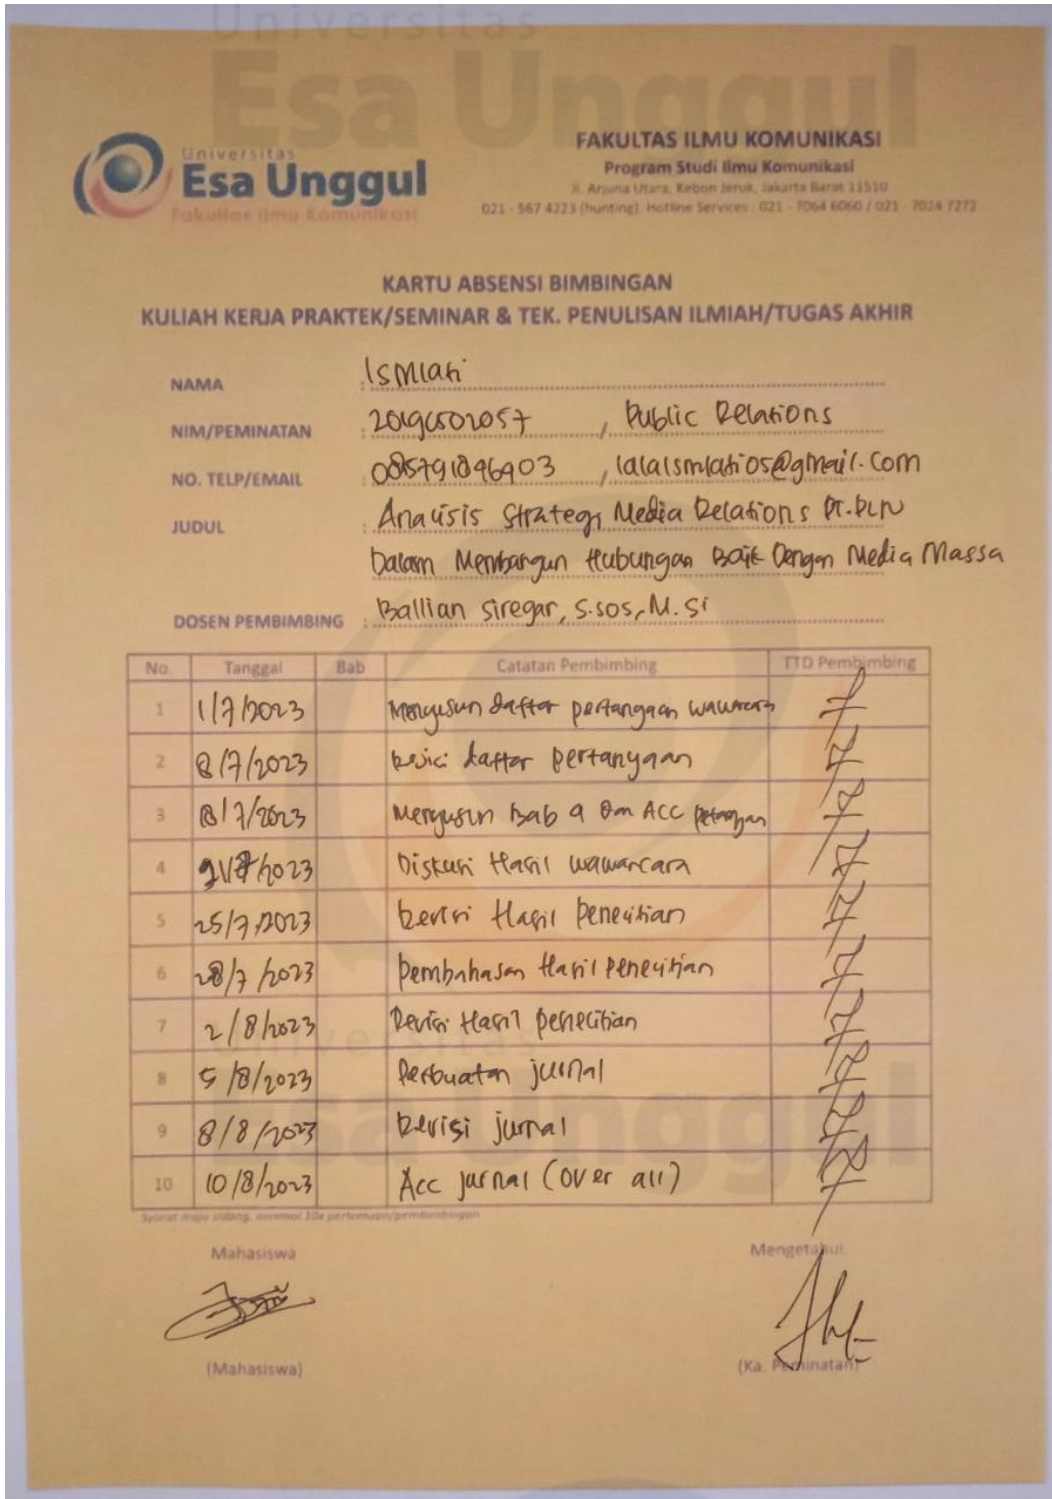 Universitas
Esa Unggul
Universitas
Esa Unggul
Fakultas Ilmu Komunikasi
FAKULTAS ILMU KOMUNIKASI
Program Studi Ilmu Komunikasi
Jl. Arjuna Utara, Kebon Jeruk, Jakarta Barat 11510
021 - 567 4223 (hunting) Hotline Services : 021 - 7064 6060 / 021 - 7024 7272
KARTU ABSENSI BIMBINGAN
KULIAH KERJA PRAKTEK/SEMINAR & TEK. PENULISAN ILMIAH/TUGAS AKHIR
NAMA : Ismiati
NIM/PEMINATAN : , Public Relations
NO. TELP/EMAIL : 085791896903 , lalaismiati05@gmail.com
JUDUL : Analisis Strategi Media Relations PT. PLN
Dalam Membangun Hubungan Baik Dengan Media Massa
DOSEN PEMBIMBING : Ballian Siregar, S.sos, M.Si
No. Tanggal Bab Catatan Pembimbing TTD Pembimbing
1 1/7/2023 Menyusun daftar pertanyaan wawancara
2 8/7/2023 Revisi daftar pertanyaan
3 /7/2023 Menyusun Bab 4 dan ACC
4 /2023 Diskusi Hasil wawancara
5 25/7/2023 Revisi Hasil Penelitian
6 28/7/2023 Pembahasan Hasil Penelitian
7 2/8/2023 Revisi Hasil penelitian
8 5/8/2023 Perbuatan jurnal
9 8/8/2023 Revisi jurnal
10 10/8/2023 Acc jurnal (over all)
Syarat maju sidang, minimal 10x pertemuan/pembimbingan
Universitas
Esa Unggul
Mahasiswa Mengetahui,
(Mahasiswa) (Ka. Peminatan)